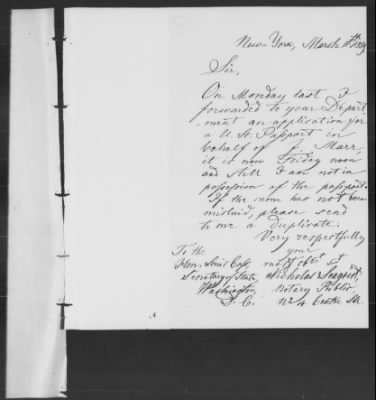 New-York, March 11th 1859
Sir,
On Monday last I
forwarded to your Depart-
ment an application for
a U. St. Passport in
behalf of J. Marr,
it is now Friday noon
and still I am not in
possession of the passport.
If the same has not been
mislaid, please send
to me a duplicate.
Very respectfully
your
To the
Hon. Louis Cass, most obt st
Secretary of State, Nicholas
Washington, Notary Public,
D. C. No 4 Centre St.